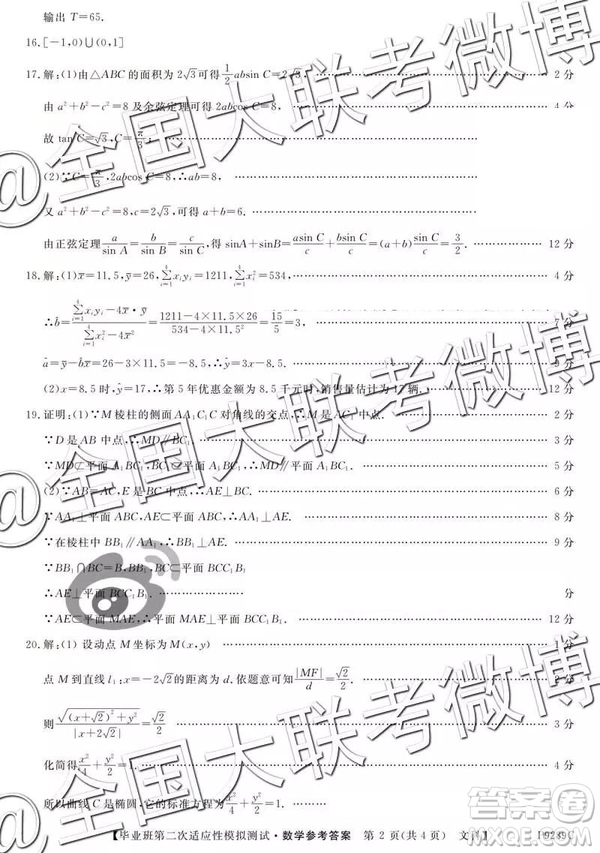 输出 T=65.
16.[-1,0)∪(0,1]
17.解:(1)由△ABC的面积为2√3可得1/2absin C=2√3, 2分
由a²+b²-c²=8及余弦定理可得2abcos C=8, 4分
故tan C=√3,C=π/3
(2)∵C=π/3,2abcos C=8,∴ab=8,
又a²+b²-c²=8,c=2√3,可得a+b=6.
由正弦定理a/sin A=b/sin B=c/sin C,得sinA+sinB=asin C/c+bsin C/c=(a+b)sin C/c=3/2. 12分
18.解:(1)x̄=11.5,ȳ=26,∑xᵢyᵢ=1211,∑xᵢ²=534, 4分
∴b̂=(∑xᵢyᵢ-4x̄·ȳ)/(∑xᵢ²-4x̄²)=(1211-4×11.5×26)/(534-4×11.5²)=15/5=3,
â=ȳ-b̂x̄=26-3×11.5=-8.5,∴ŷ=3x-8.5. 9分
(2)x=8.5时,ŷ=17,∴第5年优惠金额为8.5千元时,销售量估计为17辆. 12分
19.证明:(1)∵M棱柱的侧面AA₁C₁C对角线的交点,∴M是AC₁中点. 2分
∵D是AB中点,∴MD∥BC₁.
∵MD⊄平面A₁BC₁,BC₁⊂平面A₁BC₁,∴MD∥平面A₁BC₁. 5分
(2)∵AB=AC,E是BC中点,∴AE⊥BC. 6分
∵AA₁⊥平面ABC,AE⊂平面ABC,∴AA₁⊥AE. 8分
∵在棱柱中BB₁∥AA₁,∴BB₁⊥AE. 9分
∵BB₁∩BC=B,BB₁,BC⊂平面BCC₁B₁,
∴AE⊥平面BCC₁B₁. 分
∵AE⊂平面MAE,∴平面MAE⊥平面BCC₁B₁. 12分
20.解:(1)设动点M坐标为M(x,y) 1分
点M到直线l₁:x=-2√2的距离为d.依题意可知|MF|/d=√2/2 2分
则√((x+√2)²+y²)/|x+2√2|=√2/2 3分
化简得x²/4+y²/2=1 4分
所以曲线C是椭圆,它的方程为x²/4+y²/2=1 5分
【毕业班第二次适应性模拟测试·数学参考答案 第2页(共4页) 文科】 19289C
@全国大联考微博
@全国大联考微博
@全国大联考微博